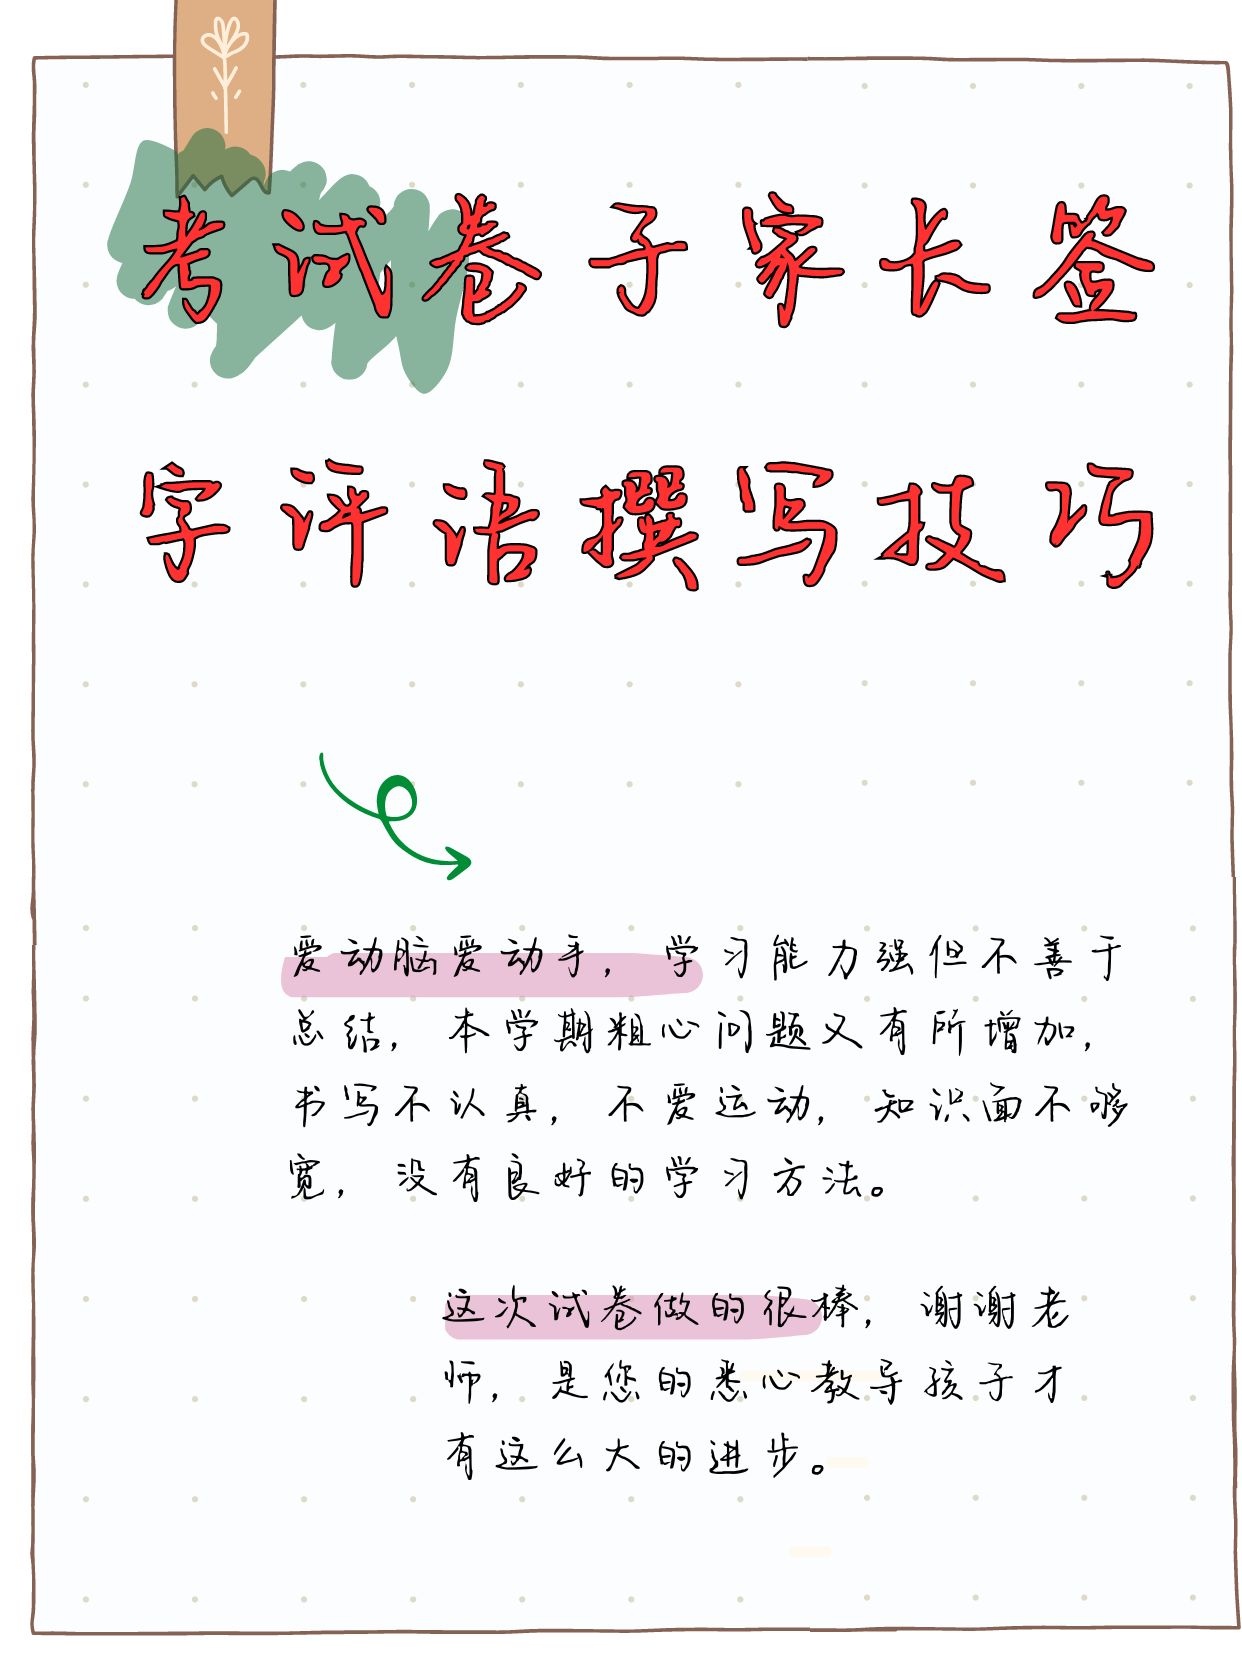 考试卷子家长签
字评语撰写技巧
爱动脑爱动手，学习能力强但不善于
总结，本学期粗心问题又有所增加，
书写不认真，不爱运动，知识面不够
宽，没有良好的学习方法。
这次试卷做的很棒，谢谢老
师，是您的悉心教导孩子才
有这么大的进步。